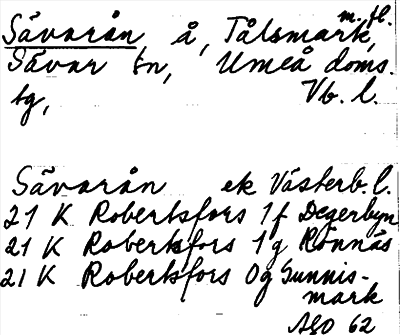 Sävarån å, Tålsmark, m.fl.
Sävar sn, Umeå doms.
tg, Vb. l.
Sävarån ek Västerb. l.
21 K Robertsfors 1f Degerbyn
21 K Robertsfors 1g Rönnäs
21 K Robertsfors 0g Gunnis-
mark
ASO 62